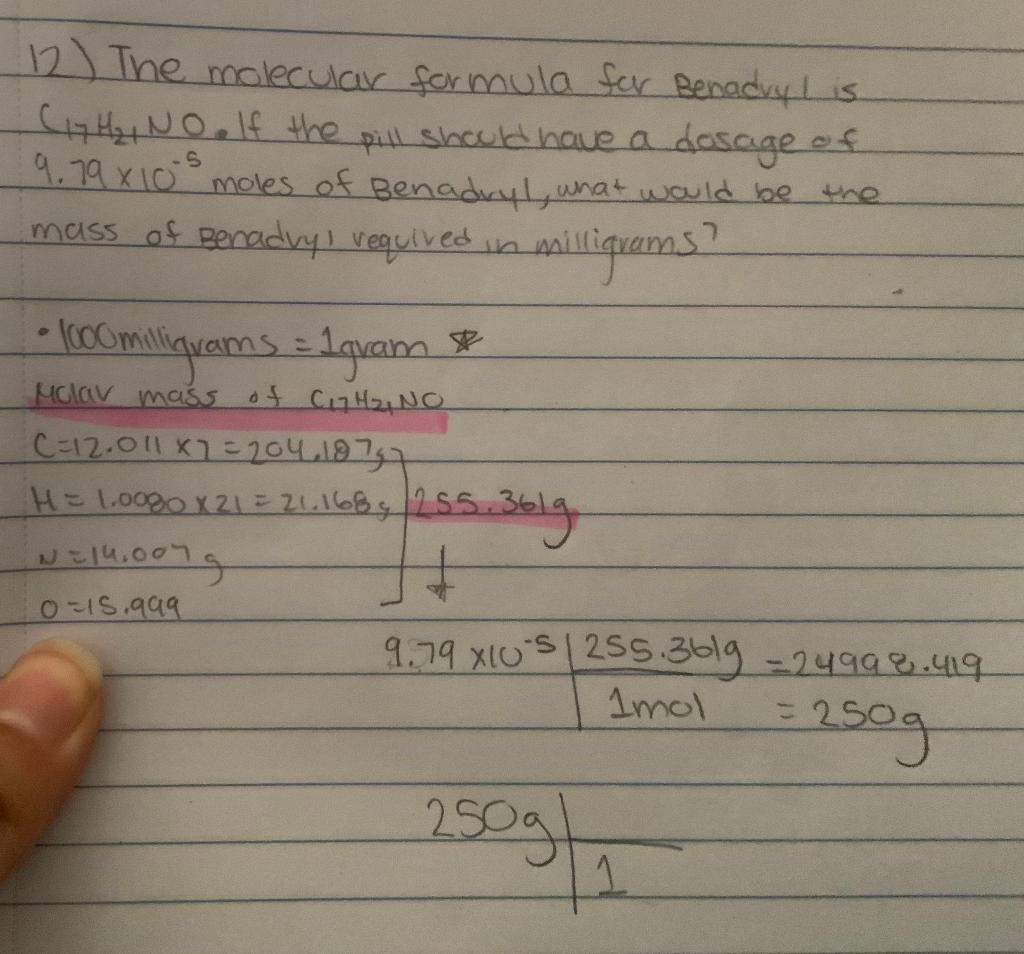 12) The molecular formula for Benadryl is
C₁₇H₂₁NO. If the pill should have a dosage of
9.79 x10⁻⁵ moles of Benadryl, what would be the
mass of Benadryl required in milligrams?
• 1000milligrams = 1gram ☆
Molar mass of C₁₇H₂₁NO
C=12.011 x7=204.187g
H=1.0080x21=21.168g 255.361g
N=14.007g
O=15.999
9.79 x10⁻⁵ | 255.361g =24998.419
1mol =250g
250g
1